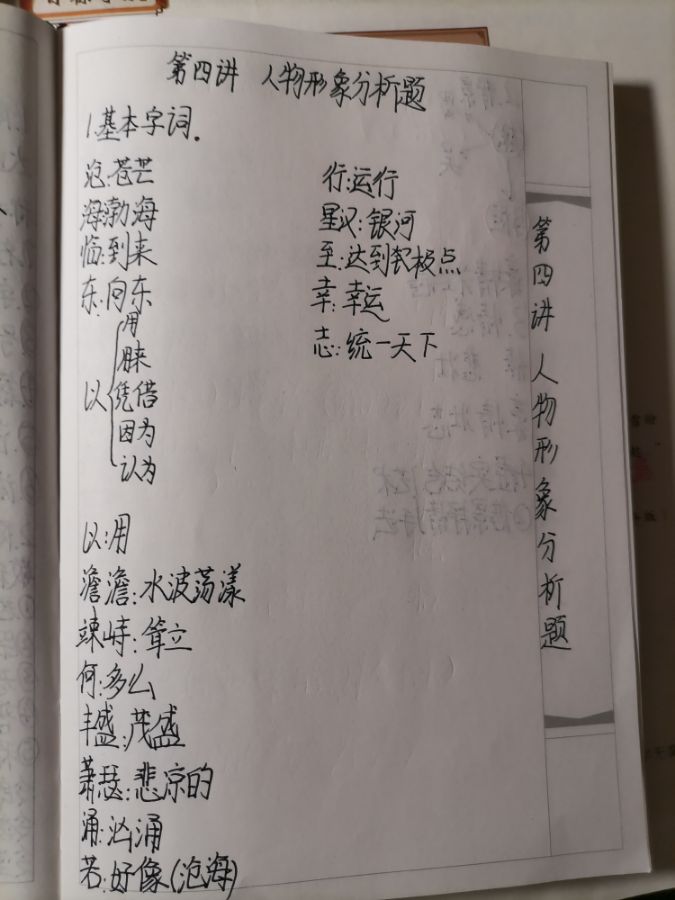 第四讲 人物形象分析题
1.基本字词.
沧:苍茫
海:渤海
临:到来
东:向东
以
用
来
凭借
因为
认为
以:用
澹澹:水波荡漾
竦峙:耸立
何:多么
丰盛:茂盛
萧瑟:悲凉的
涌:汹涌
若:好像(沧海)
行:运行
星汉:银河
至:达到
极点
幸:幸运
志:统一天下
第四讲 人物形象分析题